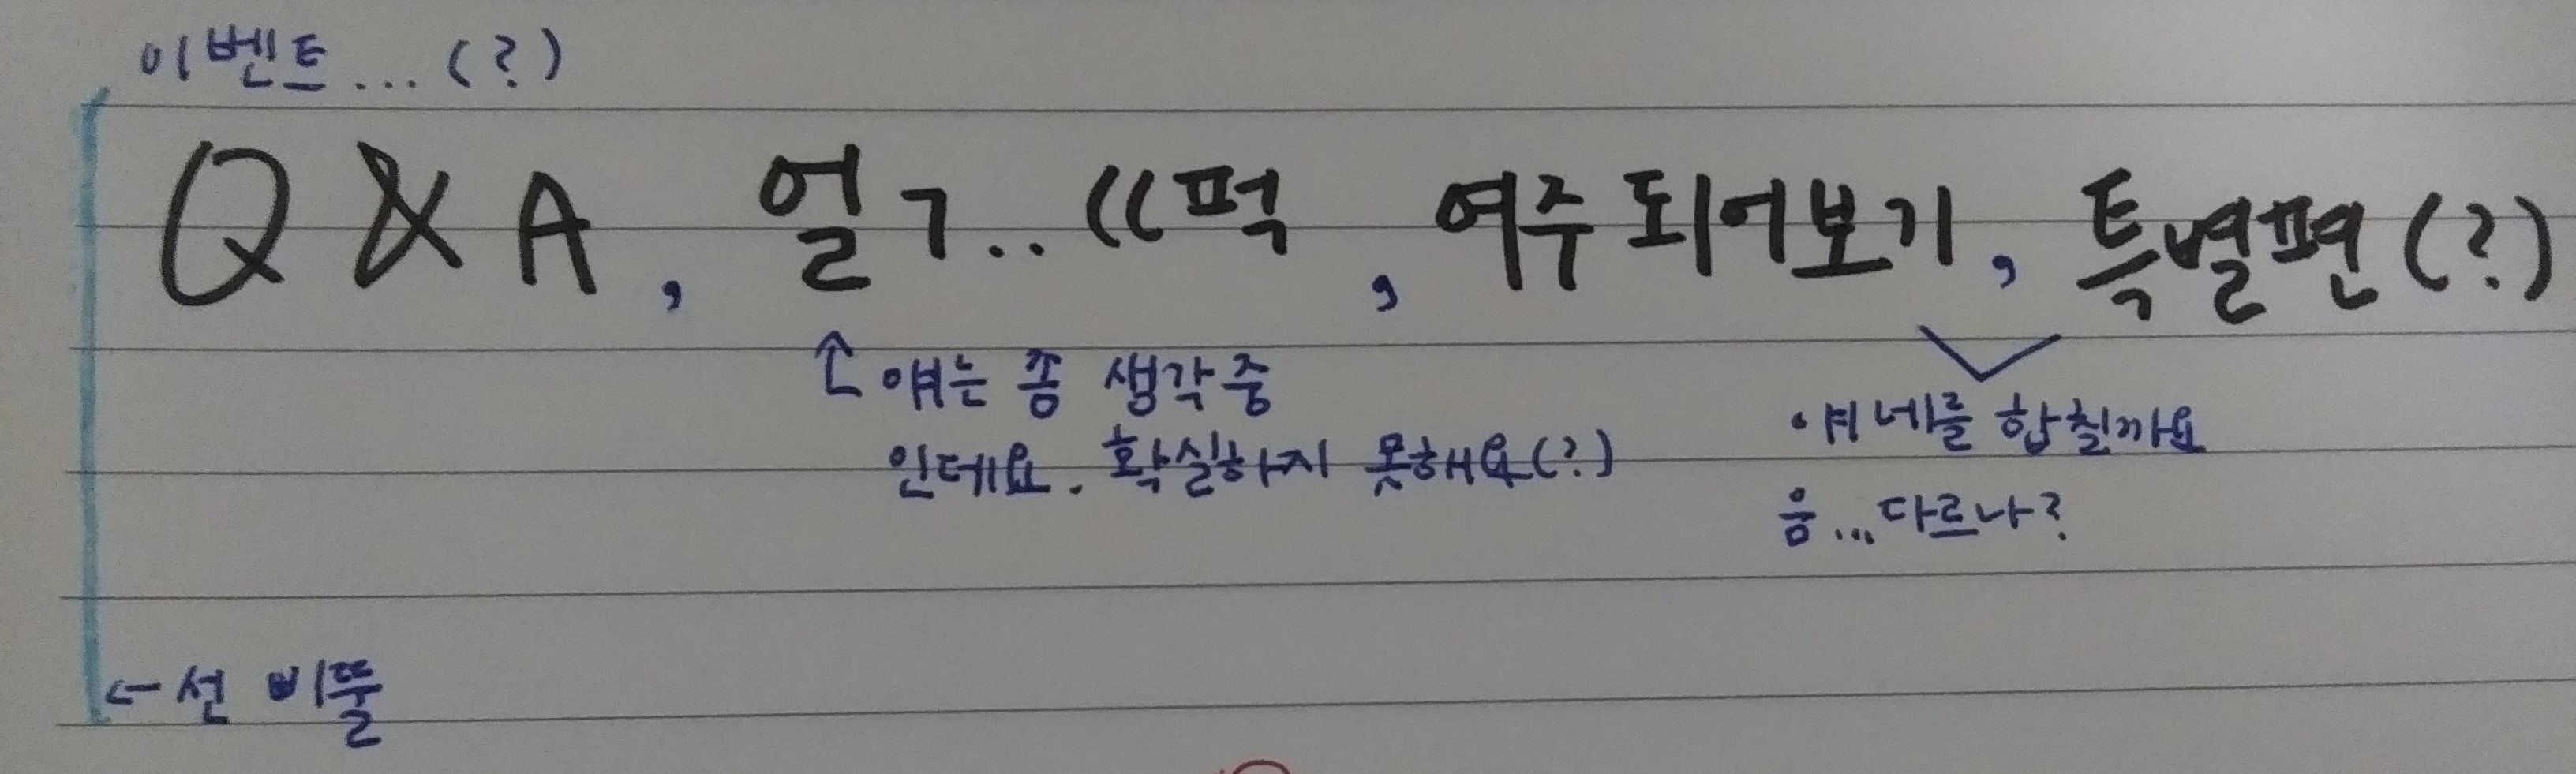 이벤트...(?)
Q & A, 얼ㄱ..((퍽, 여주되어보기, 특별편(?)
↑ 얘는 좀 생각중
인데요. 확실하지 못해요(?)
얘네를 합칠까요
음...다르나?
← 선 삐뚤